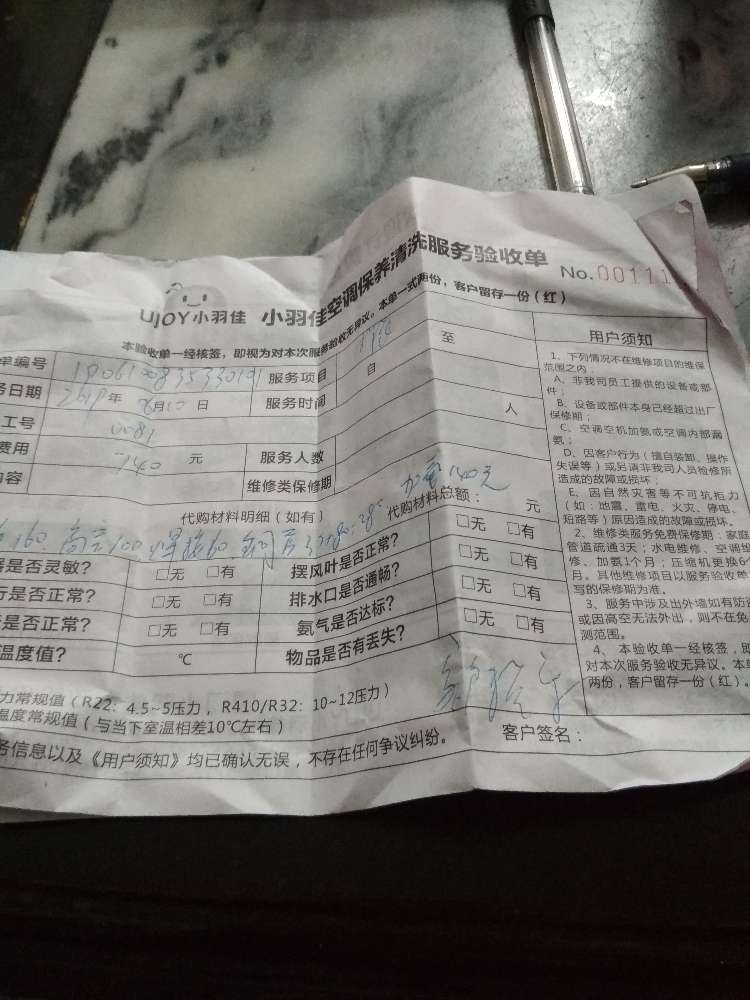 UJOY小羽佳 小羽佳空调保养清洗服务验收单 No.00111
本验收单一经核签，即视为对本次服务验收无异议。本单一式两份，客户留存一份（红）
单编号 服务项目
务日期 年 月 日 服务时间 日 至
工号 0081
费用 740 元 服务人数 人
内容 维修类保修期
代购材料明细（如有） 代购材料总额： 元
160 100 焊接60
是否灵敏？ □无 □有 摆风叶是否正常？ □无 □有
行是否正常？ □无 □有 排水口是否通畅？ □无 □有
是否正常？ □无 □有 氨气是否达标？ □无 □有
温度值？ ℃ 物品是否有丢失？ □无 □有
力常规值（R22：4.5~5压力，R410/R32：10~12压力）
温度常规值（与当下室温相差10℃左右）
务信息以及《用户须知》均已确认无误，不存在任何争议纠纷。
客户签名：
用户须知
1、下列情况不在维修项目的维保
范围之内：
A、非我司员工提供的设备或部
件；
B、设备或部件本身已经超过出厂
保修期；
C、空调空机加氨或空调内部漏
氨；
D、因客户行为（擅自装卸、操作
失误等）或另请非我司人员检修所
造成的故障或损坏；
E、因自然灾害等不可抗拒力
（如：地震、雷电、火灾、停电、
短路等）原因造成的故障或损坏。
2、维修类服务免费保修期：家庭
管道疏通3天；水电维修、空调维
修、加氨1个月；压缩机更换6个
月。其他维修项目以服务验收单
写的保修期为准。
3、服务中涉及出外墙如有防盗
或因高空无法外出，则不在免
测范围。
4、本验收单一经核签，即
对本次服务验收无异议。本单
两份，客户留存一份（红）。